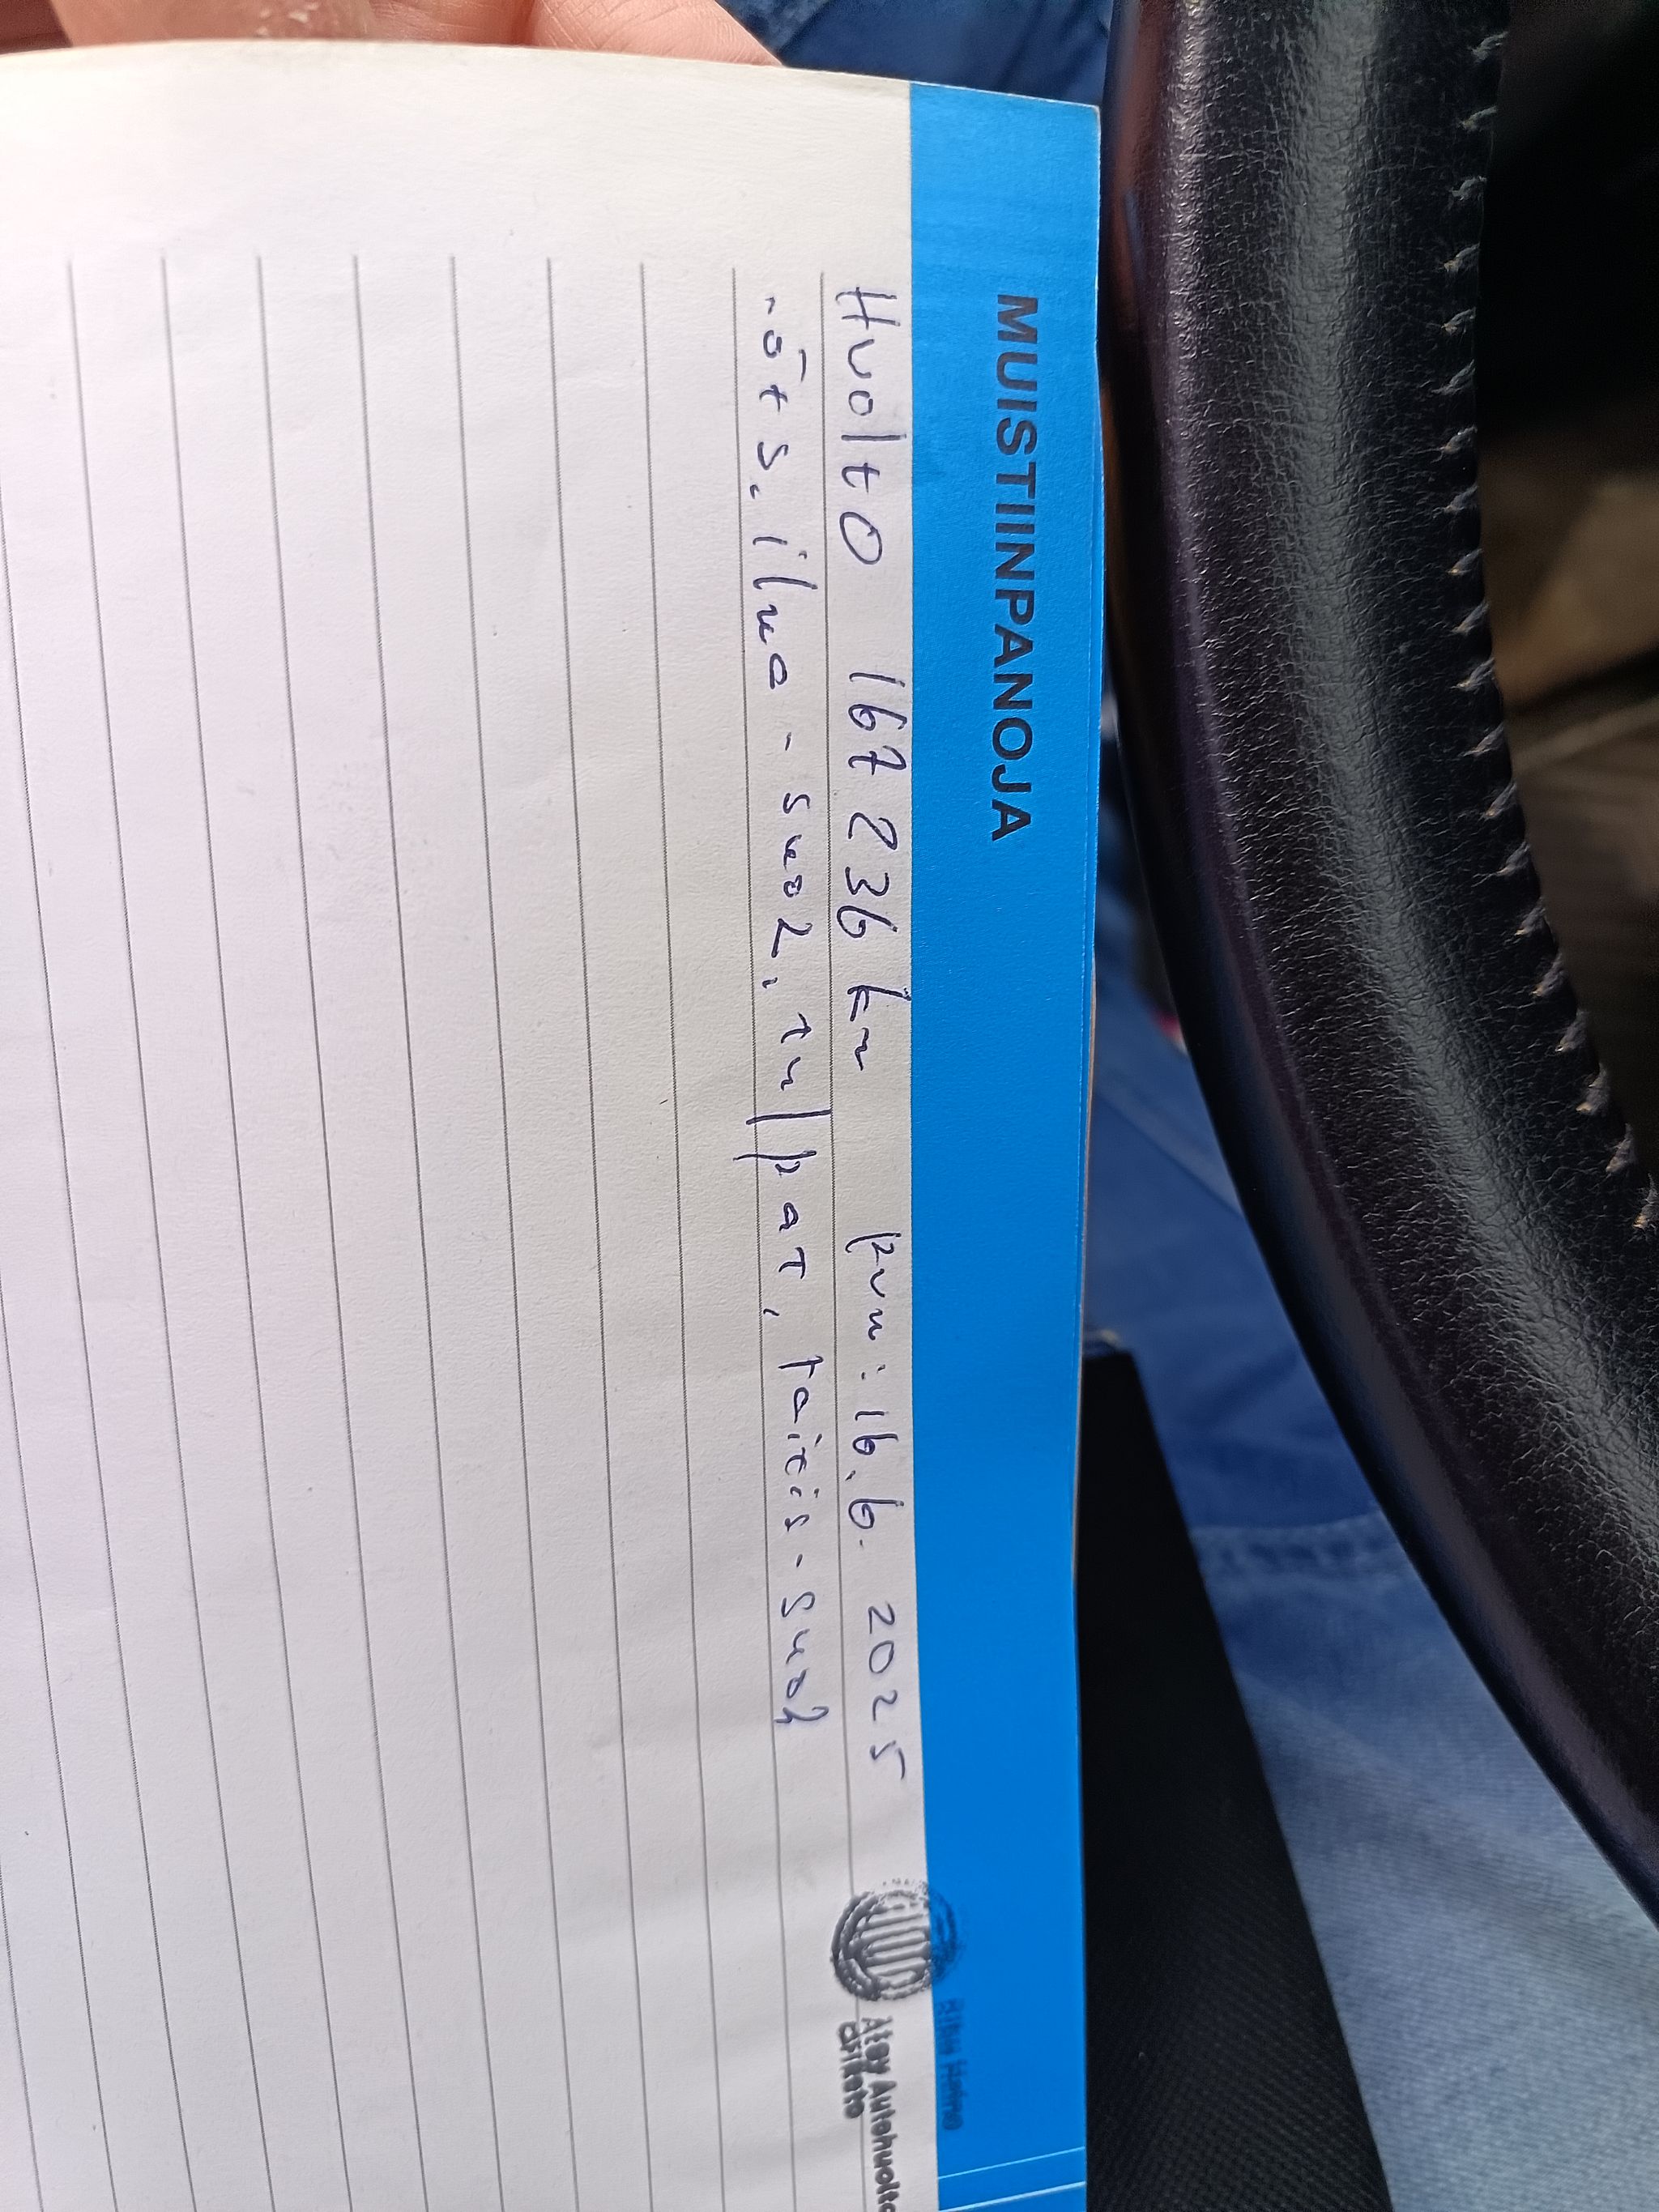 MUISTIINPANOJA
Huolto 167 236 km pvm: 16.6. 2025
-öt s. ilma - suod. tu/pat, raitis - suod
Atoy Autohuolto